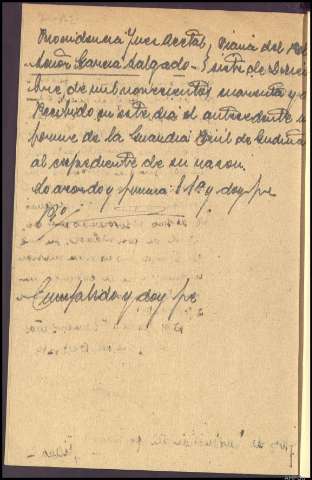 Providencia Juez Acctal, Viana del Bollo
Señor García Salgado - siete de Diciem
bre de mil novecientos cuarenta y
Recibido en este día el antecedente in
forme de la Guardia Civil de Gudiña
al expediente de su razon.
Lo acordó y firma S Sª y doy fe
Cumplido y doy fe